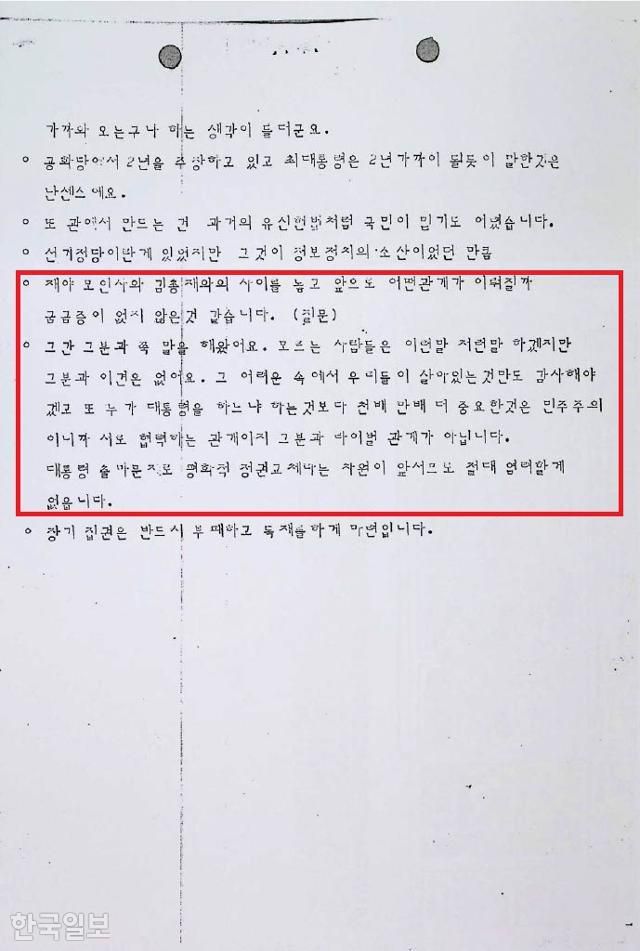 가까와 오는구나 하는 생각이 들더군요.
o 공화당에서 2년을 주장하고 있고 최대통령은 2년가까이 될듯이 말한것은
난센스에요.
o 또 관에서 만드는 건 과거의 유신헌법처럼 국민이 믿기도 어렵습니다.
o 선거정당이란게 있었지만 그것이 정보정치의 소산이었던 만큼
o 재야 모인사와 김총재와의 사이를 놓고 앞으로 어떤관계가 이뤄질까
궁금증이 없지 않은것 같습니다. (질문)
o 그간 그분과 쭉 말을 해왔어요. 모르는 사람들은 이런말 저런말 하겠지만
그분과 이견은 없어요. 그 어려운 속에서 우리들이 살아있는것만도 감사해야
겠고 또 누가 대통령을 하느냐 하는것보다 천배 만배 더 중요한것은 민주주의
이니까 서로 협력하는 관계이지 그분과 라이벌 관계가 아닙니다.
대통령 출마문제로 평화적 정권교체라는 차원이 앞서므로 절대 염려할게
없읍니다.
o 장기 집권은 반드시 부패하고 독재를하게 마련입니다.
한국일보